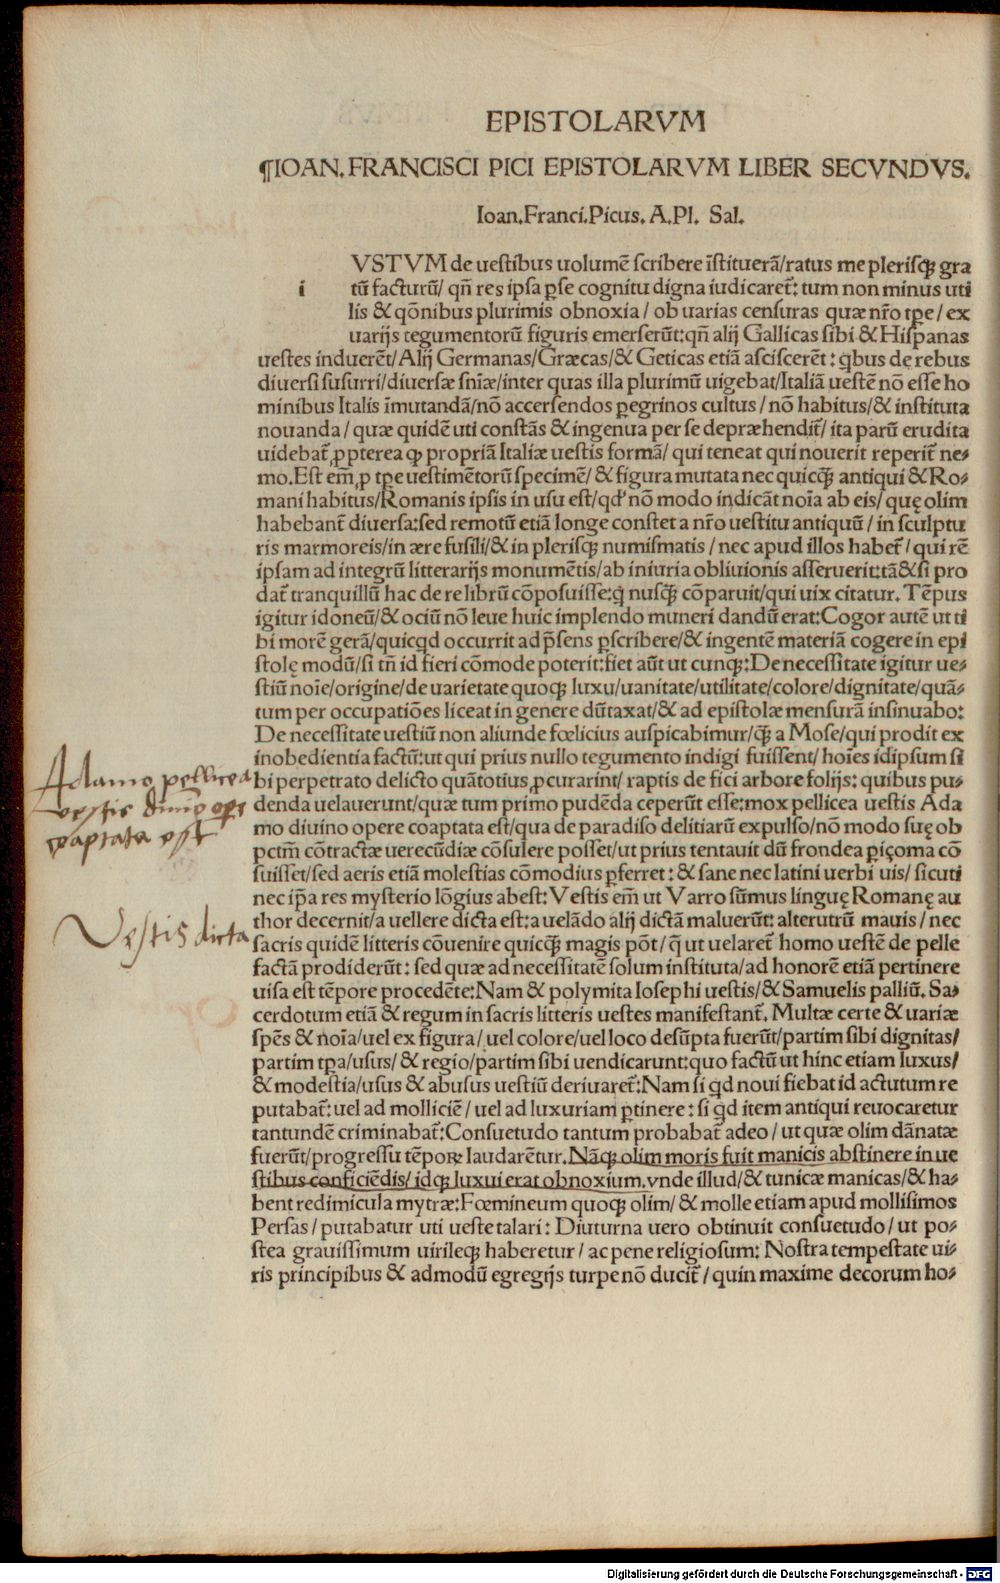 EPISTOLARVM
¶IOAN. FRANCISCI PICI EPISTOLARVM LIBER SECVNDVS.
Ioan. Franci. Picus. A. Pl. Sal.
VSTVM de ueſtibus uolumē ſcribere īſtituerā/ratus me pleriſqꝫ gra
i
tū facturū/ qn̄ res ipſa ꝑſe cognitu digna iudicaret̄: tum non minus uti
lis & qōnibus plurimis obnoxia/ ob uarias cenſuras quæ nr̄o tꝑe/ ex
uarijs tegumentorū figuris emerſerūt: qn̄ alij Gallicas ſibi & Hiſpanas
ueſtes induerēt/Alij Germanas/Græcas/& Geticas etiā aſciſcerēt: qbus de rebus
diuerſi ſuſurri/diuerſæ ſnīæ/inter quas illa plurimū uigebat/Italiā ueſtē nō eſſe ho
minibus Italis īmutandā/nō accerſendos ꝑegrinos cultus/ nō habitus/& inſtituta
nouanda/ quæ quidē uti conſtās & ingenua per ſe depræhendit̄/ ita parū erudita
uidebat̄ ꝓpterea ꝙ propriā Italiæ ueſtis formā/ qui teneat qui nouerit reperit̄ ne⸗
mo. Eſt em̄ ꝓ tꝑe ueſtimētorū ſpecimē/ & figura mutata nec quicꝗꝫ antiqui & Ro⸗
mani habitus/Romanis ipſis in uſu eſt/qd' nō modo indicāt noīa ab eis/ quę olim
habebant̄ diuerſa: ſed remotū etiā longe conſtet a nr̄o ueſtitu antiquū/ in ſculptu
ris marmoreis/in ære fuſili/& in pleriſqꝫ numiſmatis/ nec apud illos habet̄/ qui rē
ipſam ad integrū litterarijs monumētis/ab iniuria obliuionis aſſeruerit: tā & ſi pro
dat̄ tranquillū hac de re librū cōpoſuiſſe: q̄ nuſꝗꝫ cōparuit/qui uix citatur. Tēpus
igitur idoneū/& ociū nō leue huic implendo muneri dandū erat: Cogor autē ut ti
bi morē gerā/quicqd occurrit ad p̄ſens ꝑſcribere/& ingentē materiā cogere in epi
ſtolę modū/ſi tn̄ id fieri cōmode poterit: fiet aūt ut cunqꝫ: De neceſſitate igitur ue⸗
ſtiū noīe/origine/de uarietate quoqꝫ luxu/uanitate/utilitate/colore/dignitate/quā⸗
tum per occupatiōes liceat in genere dūtaxat/& ad epiſtolæ menſurā inſinuabo:
De neceſſitate ueſtiū non aliunde fœlicius auſpicabimur/ꝗꝫ a Moſe/qui prodit ex
inobedientia factū: ut qui prius nullo tegumento indigi fuiſſent/ hoīes idipſum ſi
bi perpetrato delicto quātotius ꝓcurarint/ raptis de fici arbore folijs: quibus pu⸗
denda uelauerunt/quæ tum primo pudēda ceperūt eſſe: mox pellicea ueſtis Ada
mo diuino opere coaptata eſt/qua de paradiſo delitiarū expulſo/nō modo ſuę ob
pctm̄ cōtractæ uerecūdiæ cōſulere poſſet/ut prius tentauit dū frondea ꝑiçoma cō
ſuiſſet/ſed aeris etiā moleſtias cōmodius ꝑferret: & ſane nec latini uerbi uis/ ſicuti
nec ip̄a res myſterio lōgius abeſt: Veſtis em̄ ut Varro ſūmus linguę Romanę au
thor decernit/a uellere dicta eſt: a uelādo alij dictā maluerūt: alterutrū mauis/ nec
ſacris quidē litteris cōuenire quicꝗꝫ magis pōt/q̄ ut uelaret̄ homo ueſtē de pelle
factā prodiderūt: ſed quæ ad neceſſitatē ſolum inſtituta/ad honorē etiā pertinere
uiſa eſt tēpore procedēte: Nam & polymita Ioſephi ueſtis/& Samuelis palliū. Sa⸗
cerdotum etiā & regum in ſacris litteris ueſtes manifeſtant̄. Multæ certe & uariæ
ſpēs & noīa/uel ex figura/ uel colore/uel loco deſūpta fuerūt/partim ſibi dignitas/
partim tꝑa/uſus/ & regio/partim ſibi uendicarunt: quo factū ut hinc etiam luxus/
& modeſtia/uſus & abuſus ueſtiū deriuaret̄: Nam ſi qd noui fiebat id actutum re
putabat̄: uel ad molliciē/ uel ad luxuriam ꝑtinere: ſi qd item antiqui reuocaretur
tantundē criminabat̄: Conſuetudo tantum probabat̄ adeo/ ut quæ olim dānatæ
fuerūt/progreſſu tēpoꝝ laudarētur. Nāqꝫ olim moris fuit manicis abſtinere in ue
ſtibus conficiēdis/ idqꝫ luxui erat obnoxium. vnde illud/ & tunicæ manicas/& ha⸗
bent redimicula mytræ: Fœmineum quoqꝫ olim/ & molle etiam apud molliſimos
Perſas/ putabatur uti ueſte talari: Diuturna uero obtinuit conſuetudo/ ut po⸗
ſtea grauiſſimum uirileqꝫ haberetur/ ac pene religioſum: Noſtra tempeſtate ui⸗
ris principibus & admodū egregijs turpe nō ducit̄/ quin maxime decorum ho⸗
Adamo pellicea
vestis diuino opere
coaptata est
Vestis dicta
Digitalisierung gefördert durch die Deutsche Forschungsgemeinschaft - DFG